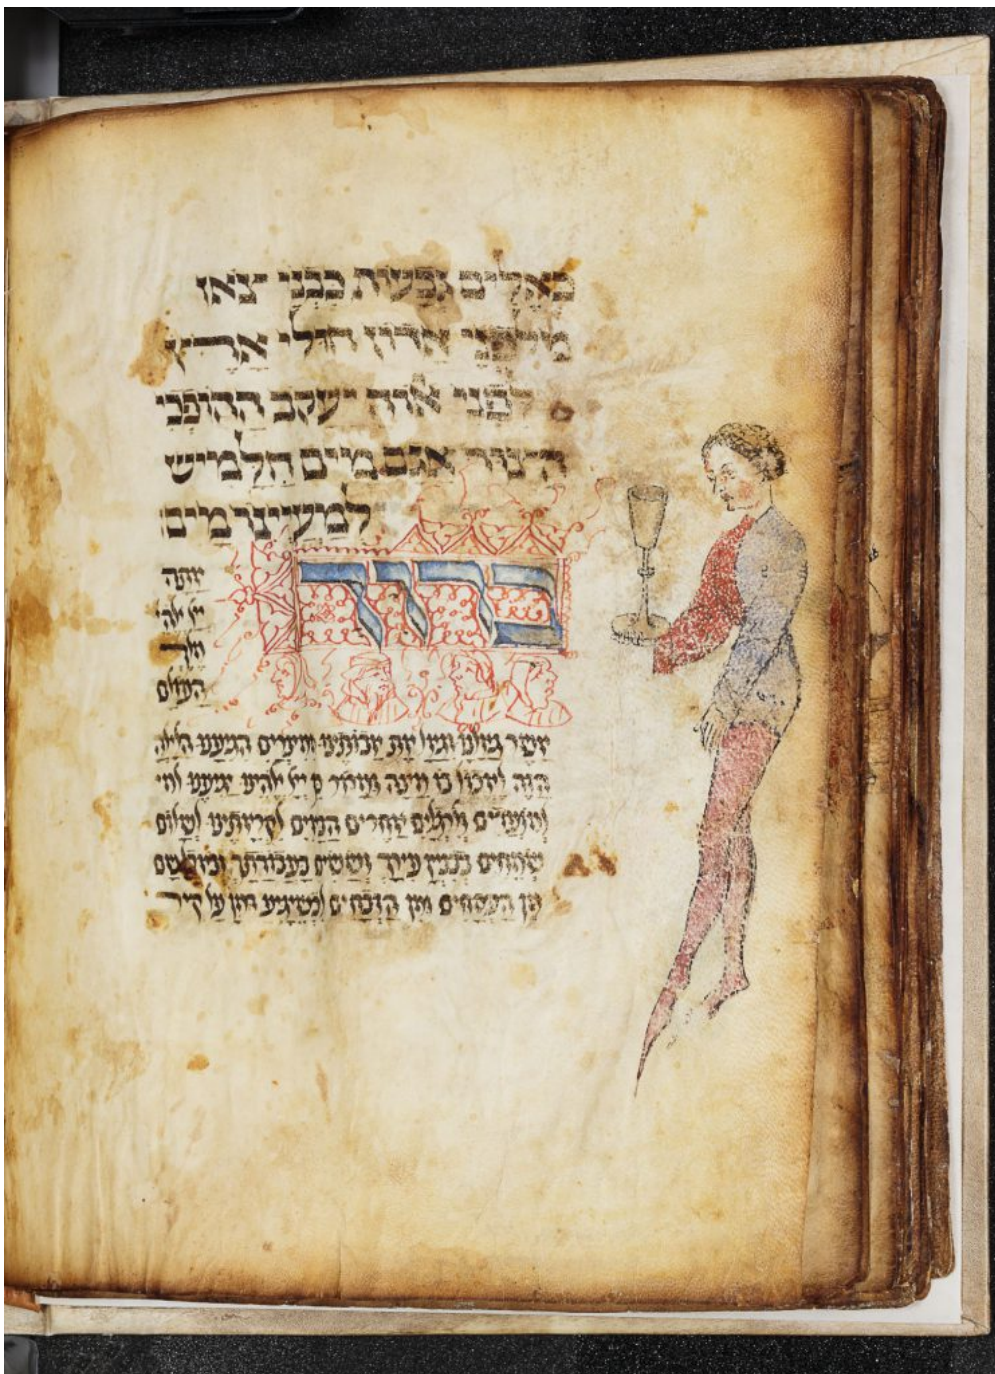 כאלים גבעות כבני צאן
מלפני אדון חולי ארץ
מלפני אלוה יעקב ההופכי
הצור אגם מים חלמיש
למעינו מים
ברוך
אתה
יי אלהי
מלך
העולם
אשר גאלנו וגאל את אבותינו ממצרים הגיענו הלילה
הזה לאכול בו מצה ומרור יי אלהינו יגיענו
למועדים ולרגלים אחרים הבאים לקראתינו לשלום
שמחים בבניין עירך וששים בעבודתך ונאכל שם
מן הפסחים ומן הזבחים שיגיע דמן על קיר